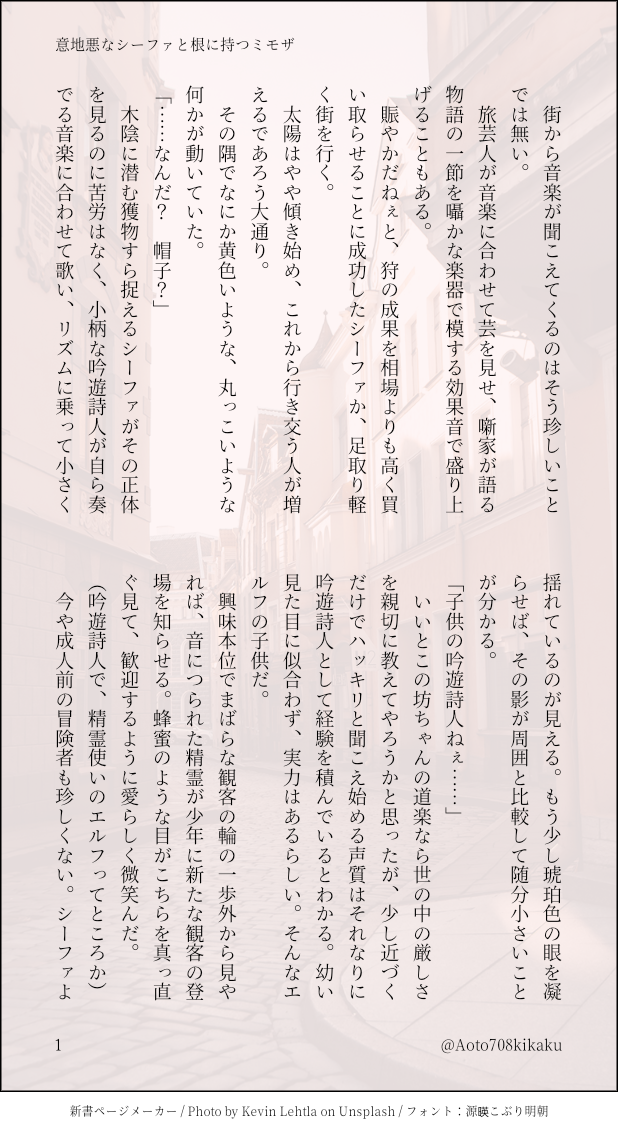 意地悪なシーファと根に持つミモザ
　街から音楽が聞こえてくるのはそう珍しいこと
では無い。
　旅芸人が音楽に合わせて芸を見せ、噺家が語る
物語の一節を囁かな楽器で模する効果音で盛り上
げることもある。
　賑やかだねぇと、狩の成果を相場よりも高く買
い取らせることに成功したシーファか、足取り軽
く街を行く。
　太陽はやや傾き始め、これから行き交う人が増
えるであろう大通り。
　その隅でなにか黄色いような、丸っこいような
何かが動いていた。
「……なんだ？　帽子？」
　木陰に潜む獲物すら捉えるシーファがその正体
を見るのに苦労はなく、小柄な吟遊詩人が自ら奏
でる音楽に合わせて歌い、リズムに乗って小さく
揺れているのが見える。もう少し琥珀色の眼を凝
らせば、その影が周囲と比較して随分小さいこと
が分かる。
「子供の吟遊詩人ねぇ……」
　いいとこの坊ちゃんの道楽なら世の中の厳しさ
を親切に教えてやろうかと思ったが、少し近づく
だけでハッキリと聞こえ始める声質はそれなりに
吟遊詩人として経験を積んでいるとわかる。幼い
見た目に似合わず、実力はあるらしい。そんなエ
ルフの子供だ。
　興味本位でまばらな観客の輪の一歩外から見や
れば、音につられた精霊が少年に新たな観客の登
場を知らせる。蜂蜜のような目がこちらを真っ直
ぐ見て、歓迎するように愛らしく微笑んだ。
（吟遊詩人で、精霊使いのエルフってところか）
　今や成人前の冒険者も珍しくない。シーファよ
1
@Aoto708kikaku
新書ページメーカー / Photo by Kevin Lehtla on Unsplash / フォント：源暎こぶり明朝